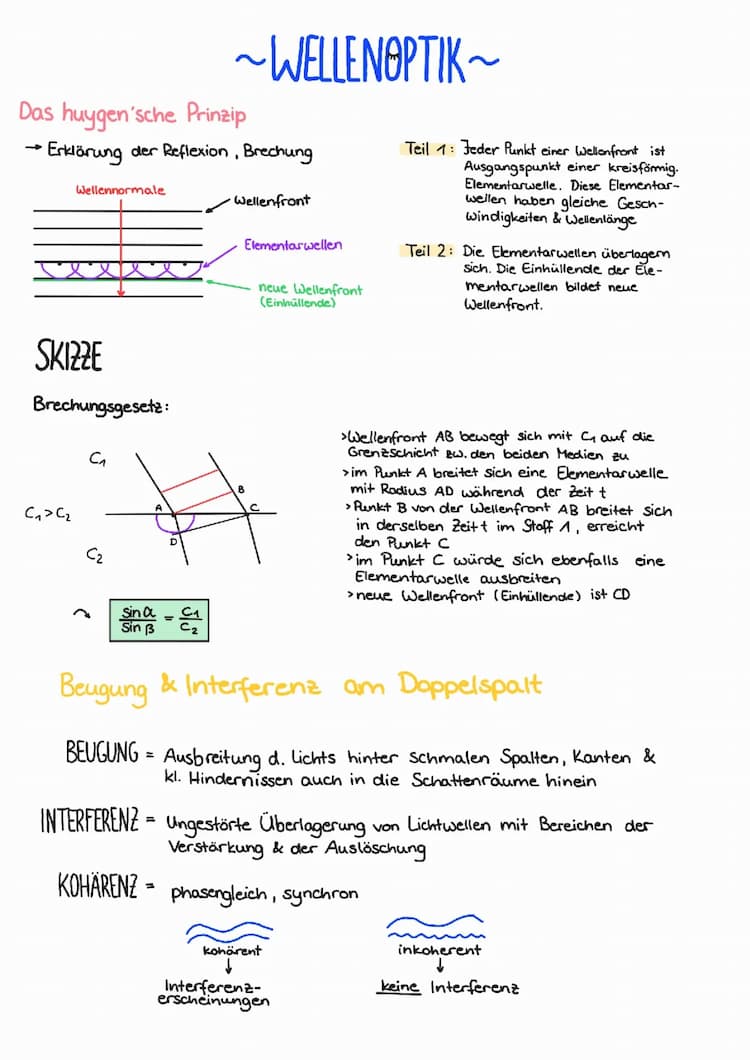 ~WELLENOPTIK~
Das huygen'sche Prinzip
→ Erklärung der Reflexion, Brechung
Wellennormale
Wellenfront
Elementarwellen
neue Wellenfront
(Einhüllende)
Teil 1: Jeder Punkt einer Wellenfront ist
Ausgangspunkt einer kreisförmig.
Elementarwelle. Diese Elementar-
wellen haben gleiche Gesch-
windigkeiten & Wellenlänge
Teil 2: Die Elementarwellen überlagern
sich. Die Einhüllende der Ele-
mentarwellen bildet neue
Wellenfront.
SKIZZE
Brechungsgesetz:
C₁
C₁ > C₂
C₂
A
B
C
D
sin α / sin β = C₁ / C₂
>Wellenfront AB bewegt sich mit C₁ auf die
Grenzschicht zw. den beiden Medien zu
>im Punkt A breitet sich eine Elementarwelle
mit Radius AD während der Zeit t
>Punkt B von der Wellenfront AB breitet sich
in derselben Zeit t im Stoff 1, erreicht
den Punkt C
>im Punkt C würde sich ebenfalls eine
Elementarwelle ausbreiten
>neue Wellenfront (Einhüllende) ist CD
Beugung & Interferenz am Doppelspalt
BEUGUNG = Ausbreitung d. Lichts hinter schmalen Spalten, Kanten &
kl. Hindernissen auch in die Schattenräume hinein
INTERFERENZ = Ungestörte Überlagerung von Lichtwellen mit Bereichen der
Verstärkung & der Auslöschung
KOHÄRENZ = phasengleich, synchron
kohärent
↓
Interferenz-
erscheinungen
inkoherent
↓
keine Interferenz